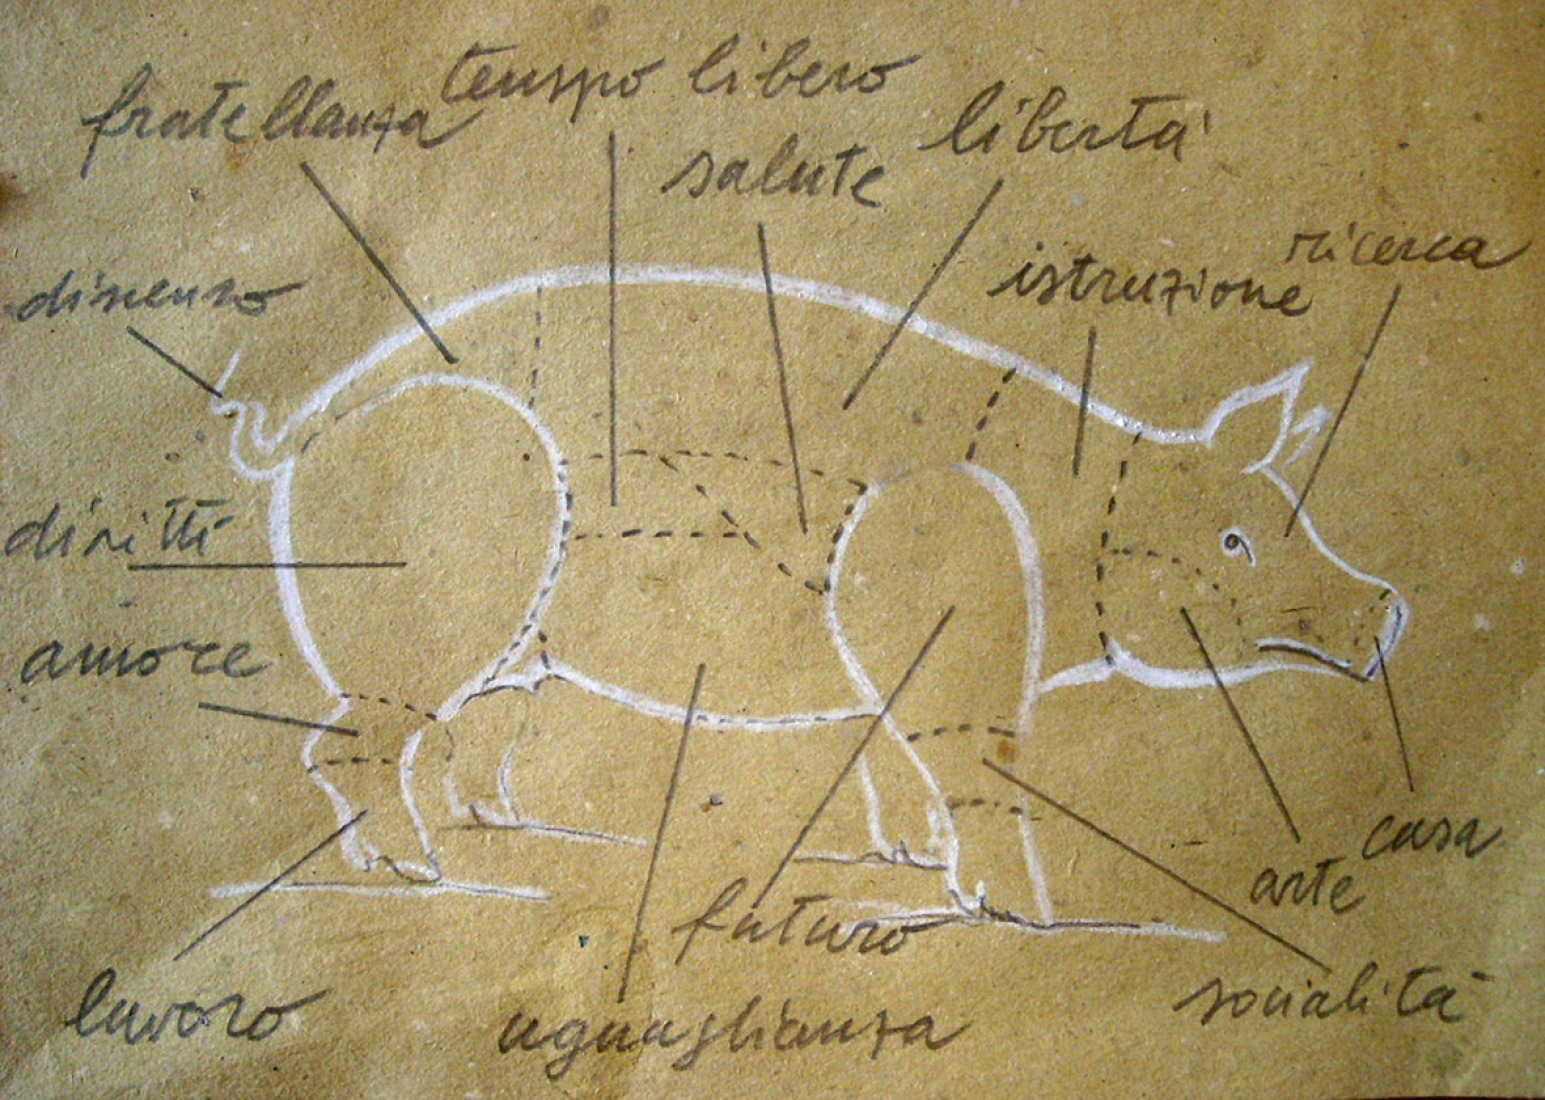 tempo libero
fratellanza
libertà
salute
ricerca
istruzione
dissenso
diritti
amore
casa
arte
futuro
lavoro
uguaglianza
socialità